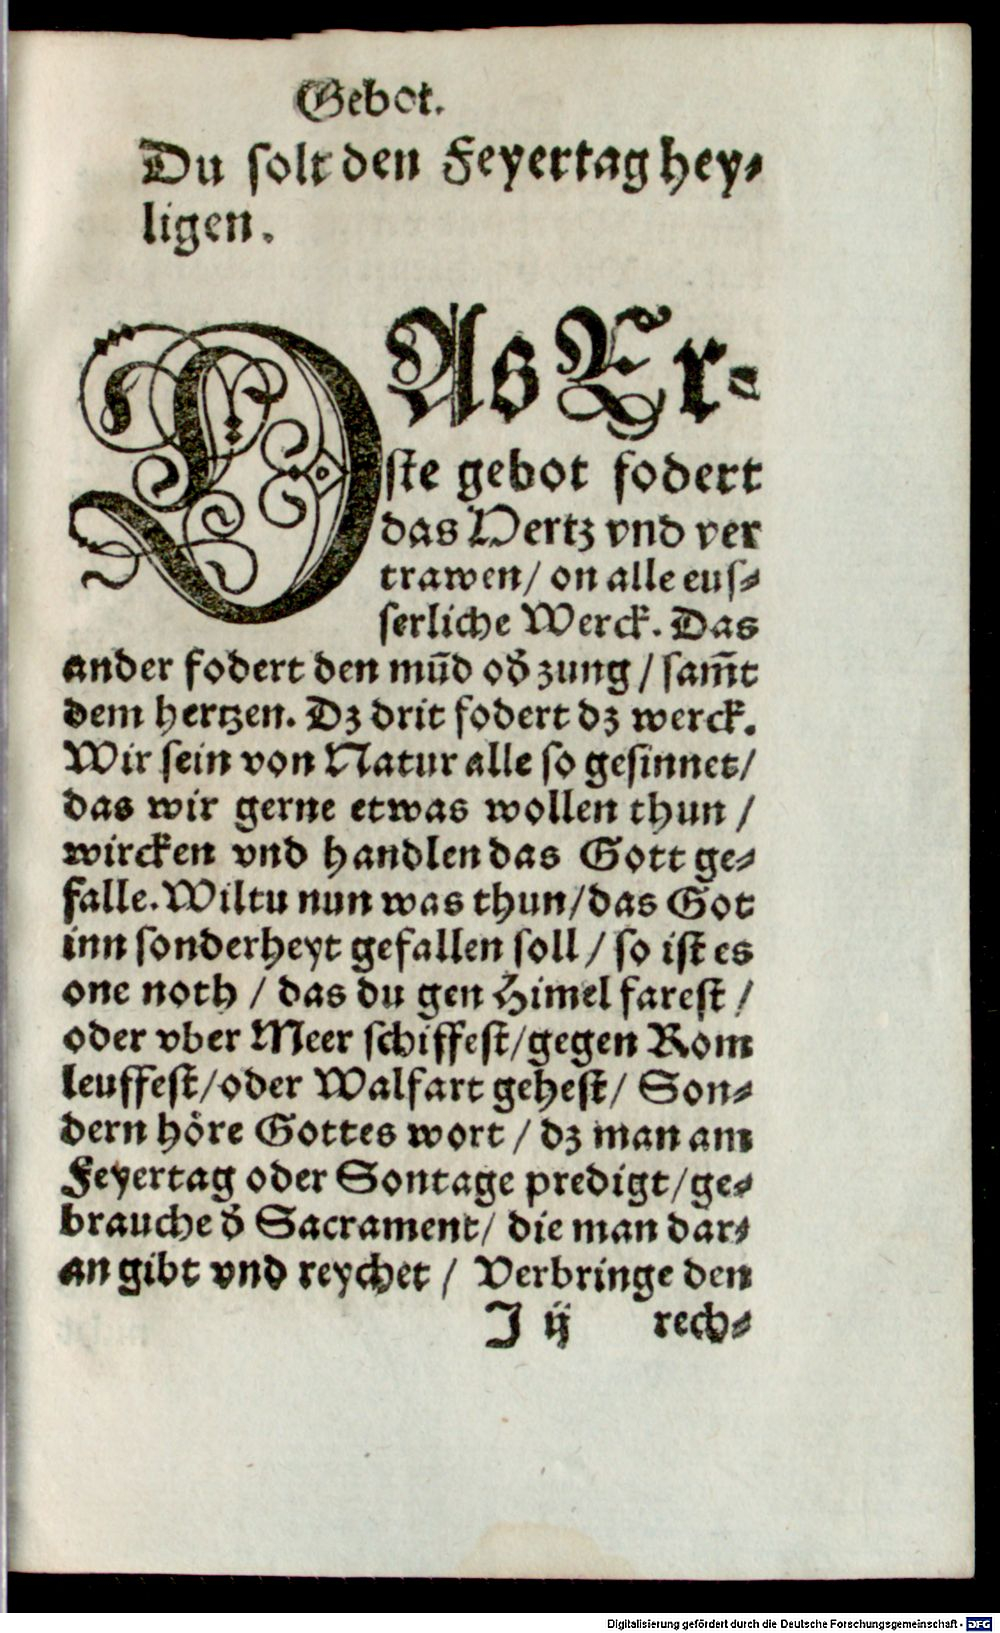 Gebot.
Du solt den Feyertag hey⸗
ligen.
DAs Er⸗
ste gebot fodert
das Hertz vnd ver
trawen/ on alle eus⸗
serliche Werck. Das
ander fodert den mūd oď zung / sam̄t
dem hertzen. Dz drit fodert dz werck.
Wir sein von Natur alle so gesinnet/
das wir gerne etwas wollen thun /
wircken vnd handlen das Gott ge⸗
falle. Wiltu nun was thun/das Got
inn sonderheyt gefallen soll / so ist es
one noth / das du gen Himel farest /
oder vber Meer schiffest/gegen Rom
leuffest/oder Walfart gehest/ Son⸗
dern höre Gottes wort / dz man am
Feyertag oder Sontage predigt/ge⸗
brauche ď Sacrament/ die man dar⸗
an gibt vnd reychet / Verbringe den
J ij rech⸗
Digitalisierung gefördert durch die Deutsche Forschungsgemeinschaft - DFG